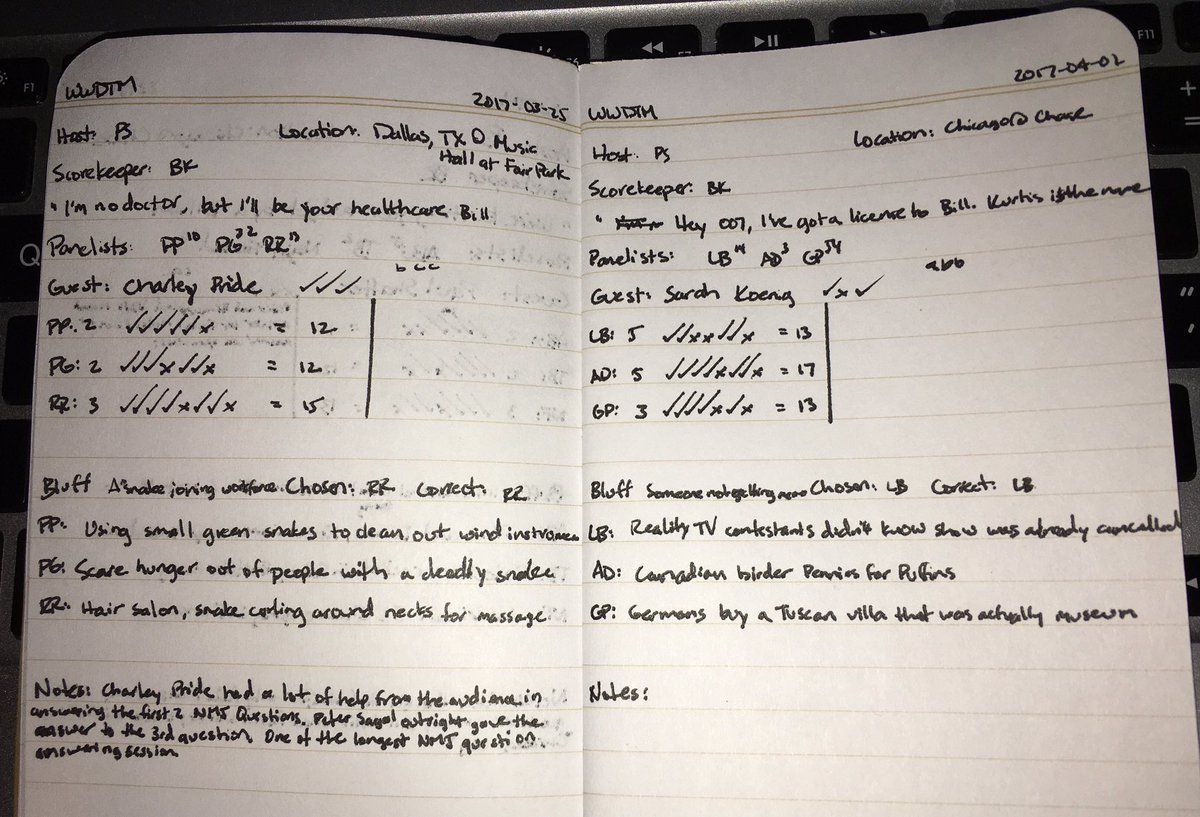 WWDTM
2017-03-25
Host: PS Location: Dallas, TX @ Music
Hall at Fair Park
Scorekeeper: BK
"I'm no doctor, but I'll be your healthcare Bill
Panelists: PP10 PG32 RR13
b c c
Guest: Charley Pride ✓✓✓
PP: 2 ✓✓✓✓✓x = 12
PG: 2 ✓✓✓x✓✓x = 12
RR: 3 ✓✓✓✓x✓✓x = 15
Bluff A snake joining workforce Chosen: RR Correct: RR
PP: Using small green snakes to clean out wind instrumen
PG: Scare hunger out of people with a deadly snake
RR: Hair salon, snake curling around necks for massage
Notes: Charley Pride had a lot of help from the audience in
answering the first 2 NMJ Questions. Peter Sagal outright gave the
answer to the 3rd question. One of the longest NMJ question
answering session
WWDTM
2017-04-02
Host: PS Location: Chicago @ Chase
Scorekeeper: BK
" Hey 007, I've got a license to Bill. Kurtis is the name
Panelists: LB14 AD3 GP54
abb
Guest: Sarah Koenig ✓x✓
LB: 5 ✓✓xx✓✓x = 13
AD: 5 ✓✓✓✓x✓✓x = 17
GP: 3 ✓✓✓✓x✓x = 13
Bluff Someone not getting Chosen: LB Correct: LB
LB: Reality TV contestants didn't know show was already cancelled
AD: Canadian birder Pennies for Puffins
GP: Germans buy a Tuscan villa that was actually museum
Notes:
F1
F7
F11
Q